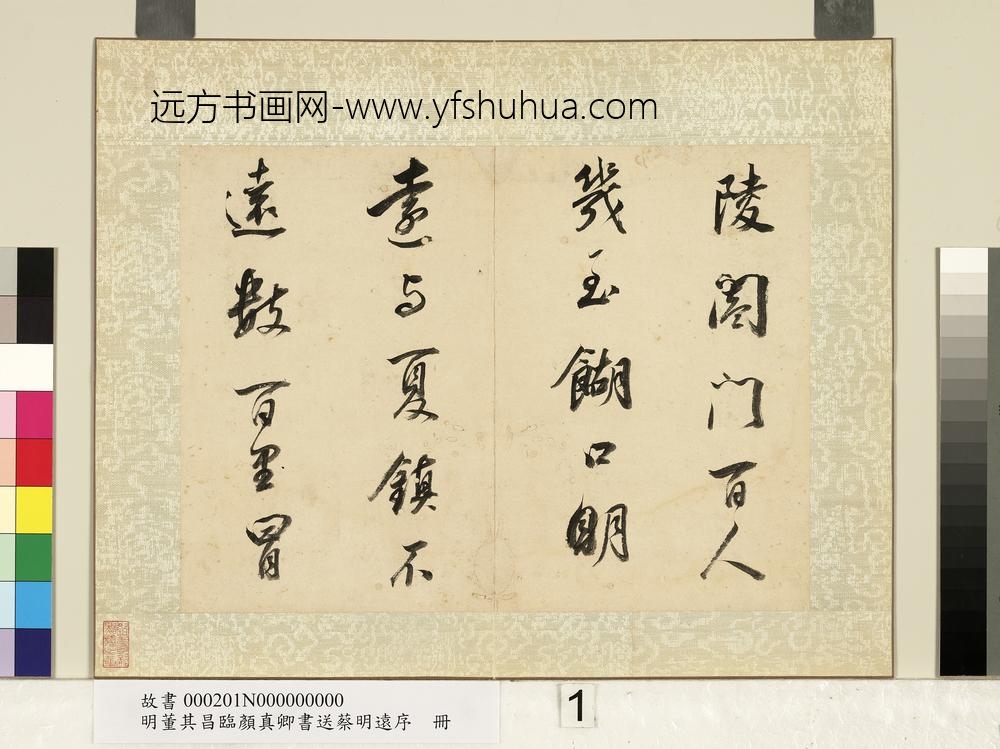 远方书画网-www.yfshuhua.com
陵阖门百人
幾至餬口明
遠与夏鎮不
遠數百里冒
故書 000201N000000000
明董其昌臨顏真卿書送蔡明遠序 冊
1